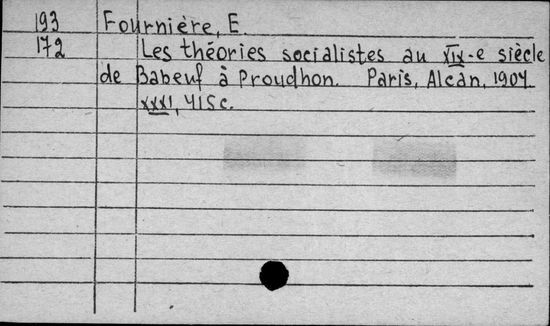 193 Fournière, E.
172 Les théories socialistes au XIX-e siècle
de Babeuf à Proudhon. Paris, Alcan, 1904.
XXXI, 415 c.